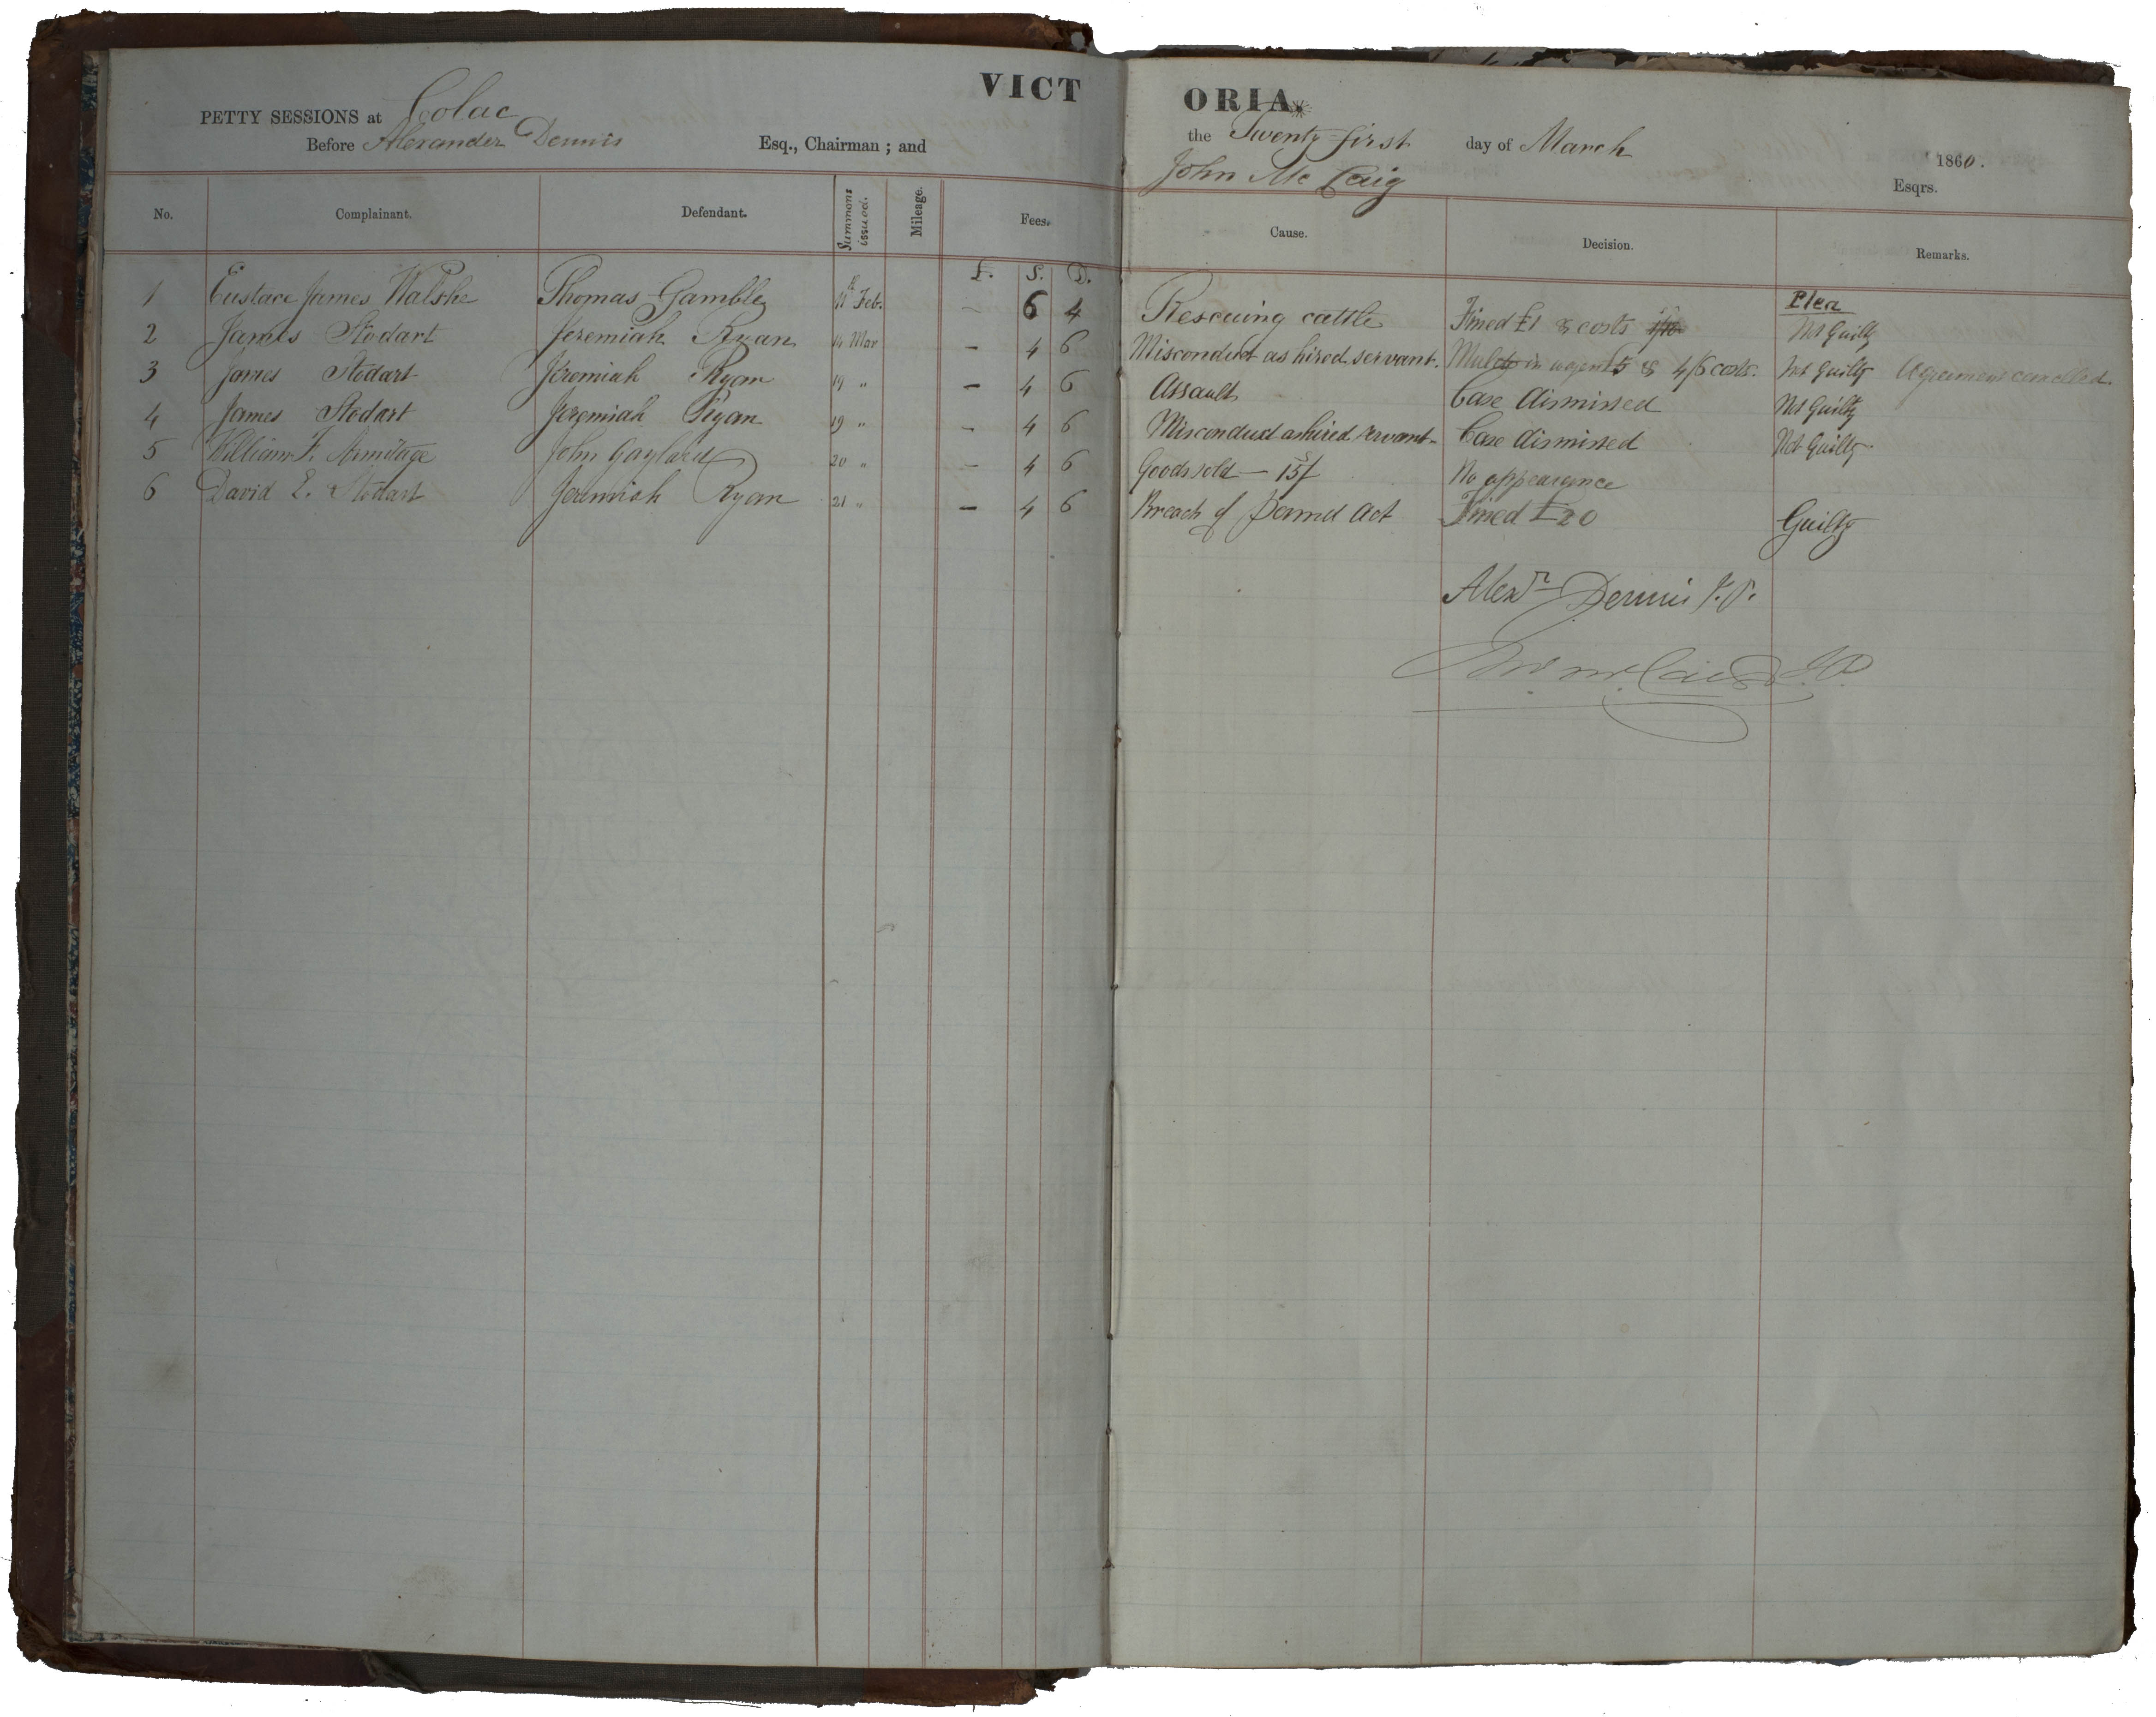 VICTORIA.
PETTY SESSIONS at Colac the Twenty-first day of March 1860.
Before Alexander Dennis Esq., Chairman ; and John McCaig Esqrs.
No. Complainant. Defendant. Summons issued. Mileage. Fees. Cause. Decision. Remarks.
£. S. D. Plea
1 Eustace James Walshe Thomas Gamble Feb. – 6 4 Rescuing cattle Fined £1 & costs Not Guilty
2 James Stodart Jeremiah Ryan 14 Mar – 4 6 Misconduct as hired servant. & 4/6 costs. Not Guilty Agreement cancelled
3 James Stodart Jeremiah Ryan 19 " – 4 6 Assault Case dismissed Not Guilty
4 James Stodart Jeremiah Ryan 19 " – 4 6 Misconduct as hired servant – Case dismissed Not Guilty
5 William F. Armitage John Gaylard 20 " – 4 6 Goods sold — No appearance
6 David E. Stodart Jeremiah Ryan 21 " – 4 6 Breach of Act Fined £20 Guilty
Alexr Dennis J.P.